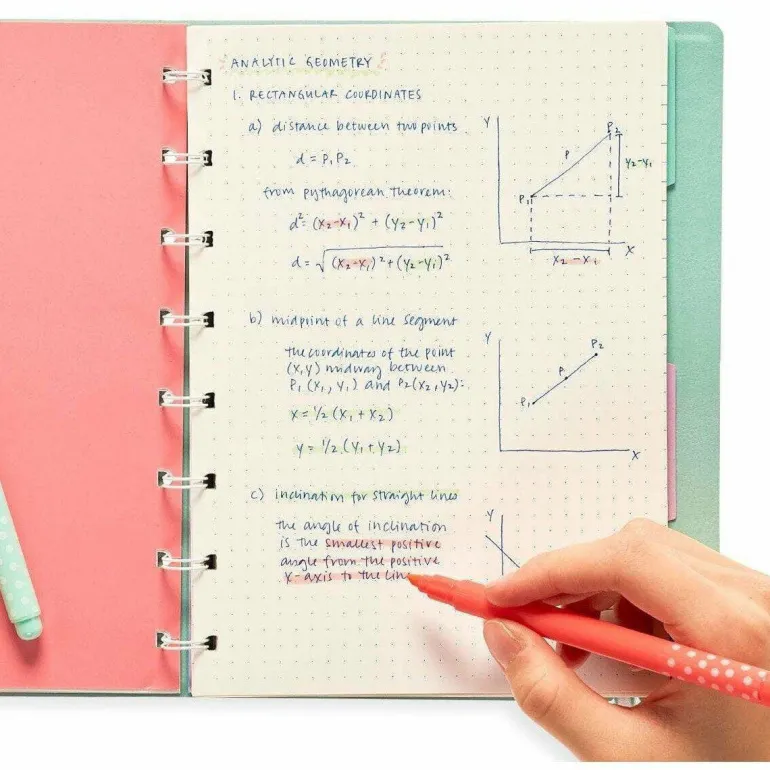 ANALYTIC GEOMETRY
1. RECTANGULAR COORDINATES
a) distance between two points
d = P₁P₂
from pythagorean theorem:
d² = (x₂-x₁)² + (y₂-y₁)²
d = √(x₂-x₁)² + (y₂-y₁)²
Y
P₂
P
P₁
y₂-y₁
x₂-x₁
X
b) midpoint of a line segment
the coordinates of the point
(x,y) midway between
P₁(x₁,y₁) and P₂(x₂,y₂):
x = 1/2 (x₁ + x₂)
y = 1/2 (y₁ + y₂)
Y
P₂
P
P₁
X
c) inclination for straight lines
the angle of inclination
is the smallest positive
angle from the positive
x-axis to the line
Y